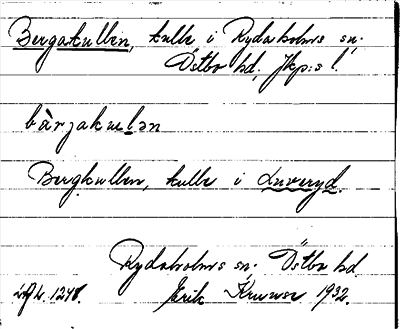 Bergakullen, kulle i Rydaholms sn;
Östbo hd, Jkp:s l.
bàrjakulən
Bergkullen, kulle i Luveryd.
Rydaholms sn; Östbo hd.
1248. Erik 1932.